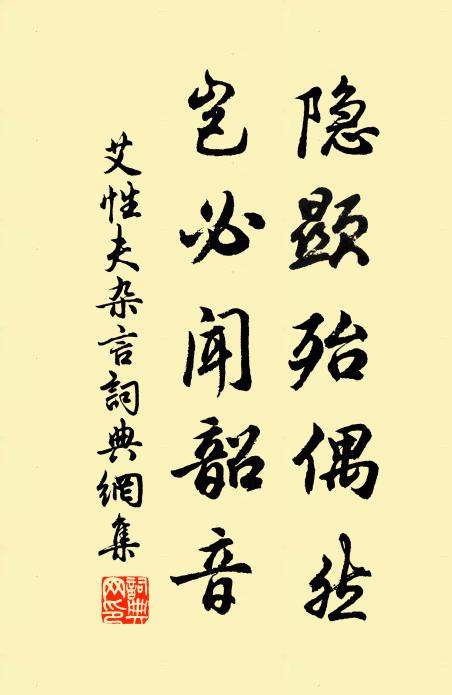 隐显殆偶然
岂必闻韶音
艾性夫杂言詞典網集
詞典网印